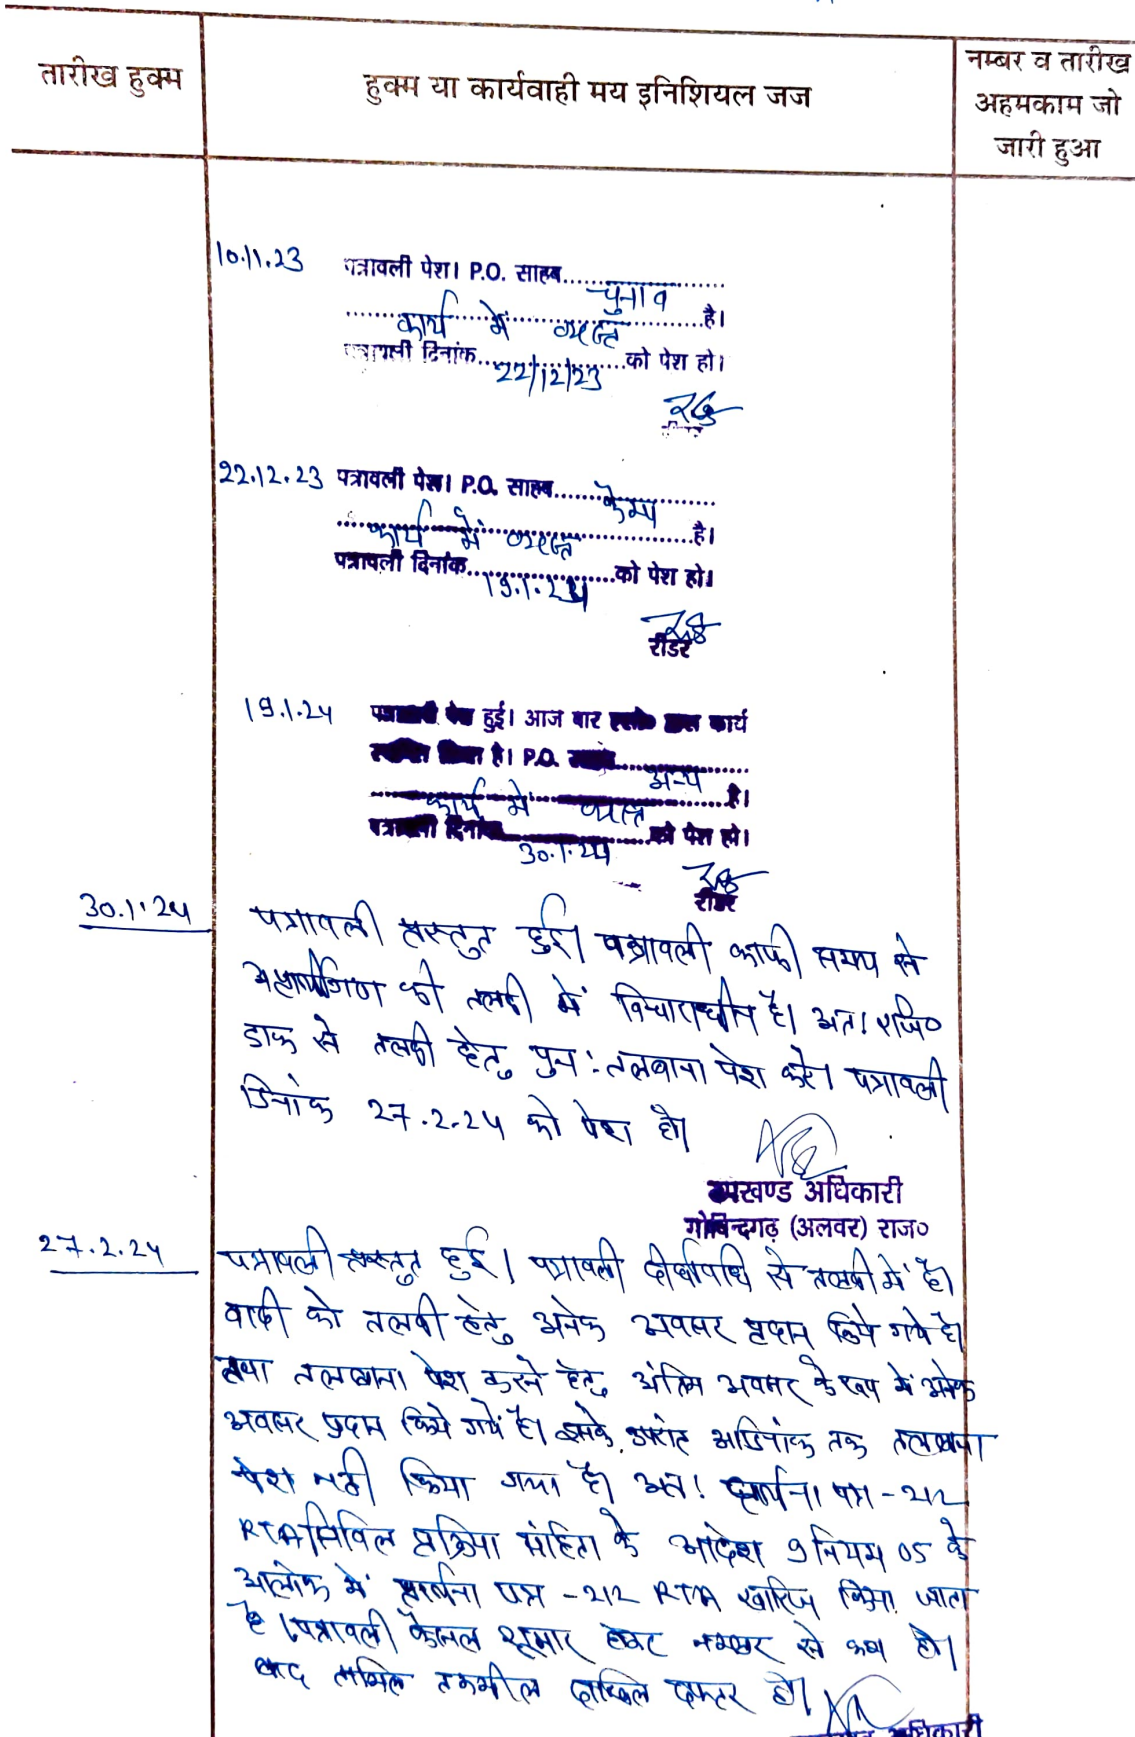 तारीख हुक्म
हुक्म या कार्यवाही मय इनिशियल जज
नम्बर व तारीख
अहमकाम जो
जारी हुआ
10.11.23 पत्रावली पेश। P.O. साहब चुनाव
कार्य में व्यस्त है।
पत्रावली दिनांक 22/12/23 को पेश हो।
रीडर
22.12.23 पत्रावली पेश। P.O. साहब कैम्प
कार्य में व्यस्त है।
पत्रावली दिनांक 19.1.24 को पेश हो।
रीडर
19.1.24 हुई। आज बार कार्य
है। P.O. अन्य
कार्य में व्यस्त है।
पत्रावली दिनांक 30.1.24 को पेश हो।
रीडर
30.1.24 पत्रावली प्रस्तुत हुई। पत्रावली काफी समय से
की तलबी में विचाराधीन है। अतः रजि०
डाक से तलबी हेतु पुनः तलबाना पेश करे। पत्रावली
दिनांक 27.2.24 को पेश हो।
उपखण्ड अधिकारी
गोविन्दगढ़ (अलवर) राज०
27.2.24 पत्रावली प्रस्तुत हुई। पत्रावली दीर्घावधि से तलबी में है।
वादी को तलबी हेतु अनेक अवसर प्रदान किये गये है।
तथा तलबाना पेश करने हेतु अंतिम अवसर के रूप में अनेक
अवसर प्रदान किये गये है। इसके उपरांत आदिनांक तक तलबाना
पेश नही किया गया है। अतः प्रार्थना पत्र - 212
RTA सिविल प्रक्रिया संहिता के आदेश 9 नियम 05 के
आलोक में प्रार्थना पत्र - 212 RTA खारिज किया जाता
है। पत्रावली फैसल शुमार होकर नम्बर से कम हो।
बाद तामिल तकमील दाखिल दफ्तर हो।
अधिकारी